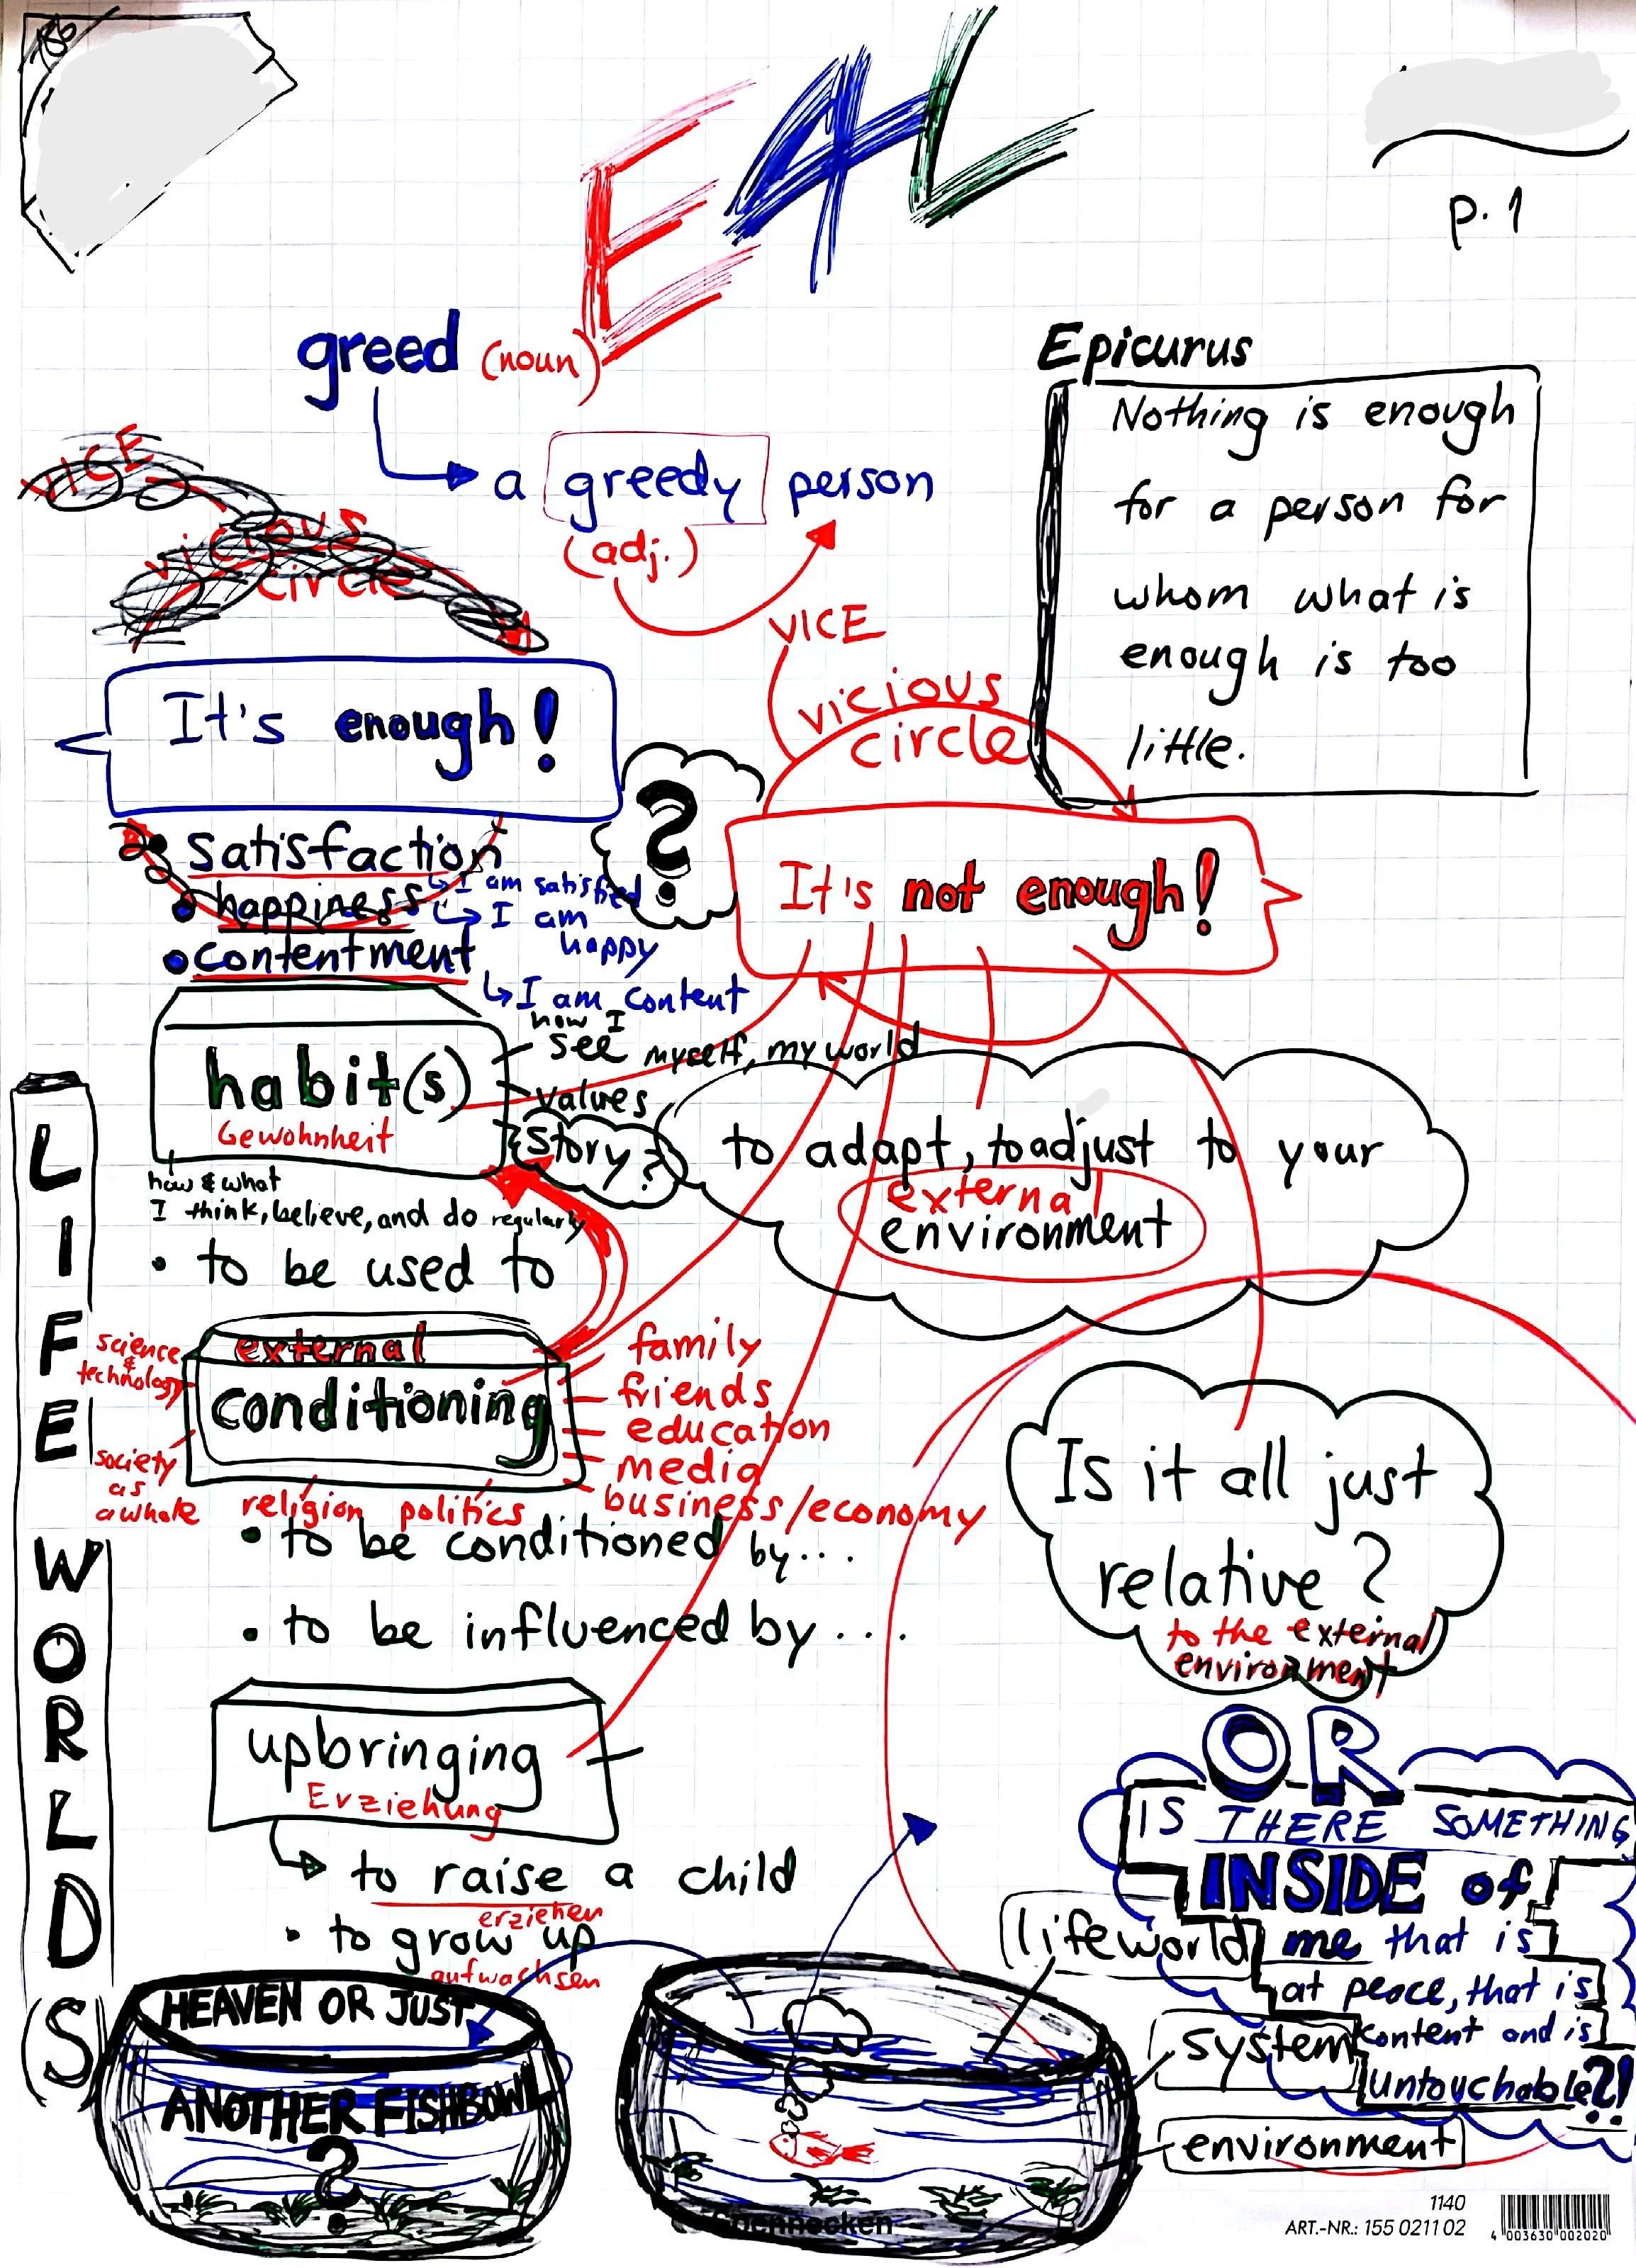 186
E4L
p. 1
greed (noun)
a greedy person
(adj.)
Epicurus
Nothing is enough
for a person for
whom what is
enough is too
little.
VICE
vicious
circle
VICE
vicious
circle
It's enough!
It's not enough!
?
• satisfaction
↳ I am satisfied
• happiness
↳ I am
happy
• contentment
↳ I am content
habit(s)
Gewohnheit
how I
see myself, my world
values
story?
how & what
I think, believe, and do regularly
• to be used to
to adapt, to adjust to your
external
environment
LIFE WORLD(S)
external
conditioning
science
&
technology
society
as
a whole
religion politics
family
friends
education
media
business/economy
• to be conditioned by...
• to be influenced by...
Is it all just
relative?
to the external
environment
upbringing
Erziehung
to raise a child
erziehen
• to grow up
aufwachsen
OR
IS THERE SOMETHING
INSIDE of
me that is
at peace, that is
content and is
untouchable?!
lifeworld
system
environment
HEAVEN OR JUST
ANOTHER FISHBOWL
?
1140
ART.-NR.: 155 0211 02
4 003630 002020